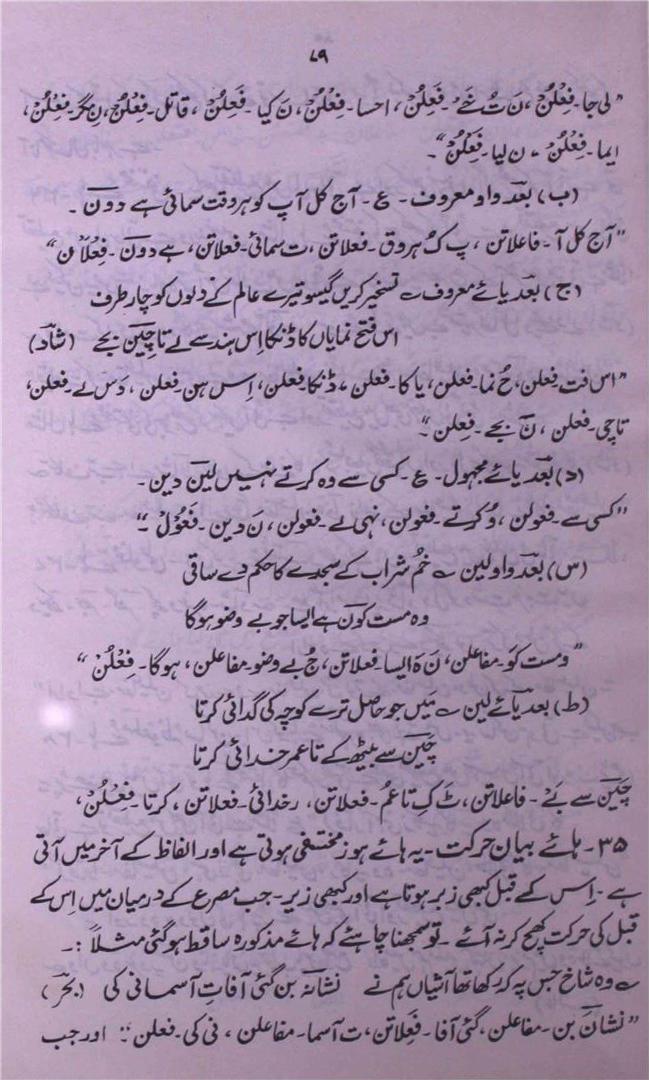 ۷۹
"لی جا۔ فِعْلُنْ، نَ تُ خَے۔ فَعِلُنْ، احسا۔ فِعْلُنْ، نَ کیا۔ فَعِلُنْ، قاتل۔ فِعْلُنْ، نِ مگر۔ فَعِلُنْ،
ایما۔ فِعْلُنْ، ن لیا۔ فَعِلُنْ"۔
(ب) بعد واو معروف۔ ع۔ آج کل آپ کو ہر وقت سمائی ہے دون۔
"آج کل آ۔ فاعلاتن، پ کُ ہر وق۔ فعلاتن، ت سمائی۔ فعلاتن، ہے دون۔ فِعْلان"
(ج) بعد یائے معروف ؎ تسخیر کریں گیسو تیرے عالم کے دلوں کو چار طرف
اس فتح نمایاں کا ڈنکا اِس ہند سے لے تا چین بجے (شاد)
"اس فت۔ فعلن، حُ نما۔ فعلن، یا کا۔ فعلن، ڈنکا۔ فعلن، اِس ہن۔ فعلن، دَس لے۔ فعلن،
تاچی۔ فعلن، نَ بجے۔ فَعِلن"۔
(د) بعد یائے مجہول۔ ع۔ کسی سے وہ کرتے نہیں لین دین۔
"کسی سے۔ فعولن، وُ کرتے۔ فعولن، نہی لے۔ فعولن، نَ دین۔ فَعُوْلْ"۔
(س) بعد واو لین ؎ خُم شراب کے سجدے کا حکم دے ساقی
وہ مست کون ہے ایسا جو بے وضو ہوگا
"وُ مست کَو۔ مفاعلن، نَ ہَ ایسا۔ فعلاتن، جُ بے وضو۔ مفاعلن، ہوگا۔ فِعْلُنْ"
(ط) بعد یائے لین ؎ میں جو حاصل ترے کوچہ کی گدائی کرتا
چین سے بیٹھ کے تا عمر خدائی کرتا
چین سے بے۔ فاعلاتن، ٹ کِ تا عم۔ فعلاتن، رخدائی۔ فعلاتن، کرتا۔ فِعْلُنْ،
۳۵۔ ہائے بیان حرکت۔ یہ ہائے ہوز مختفی ہوتی ہے اور الفاظ کے آخر میں آتی
ہے۔ اِس کے قبل کبھی زبر ہوتا ہے اور کبھی زیر۔ جب مصرع کے درمیان میں اِس کے
قبل کی حرکت کھچ کر نہ آئے۔ تو سمجھنا چاہئے کہ ہائے مذکورہ ساقط ہوگئی مثلاً :۔
؎ وہ شاخ جس پہ کہ رکھا تھا آشیاں ہم نے نشانہ بن گئی آفات آسمانی کی (بحر)
"نشانَ بن۔ مفاعلن، گئی آفا۔ فَعِلاتن، ت آسما۔ مفاعلن، نی کی۔ فعلن"۔ اور جب